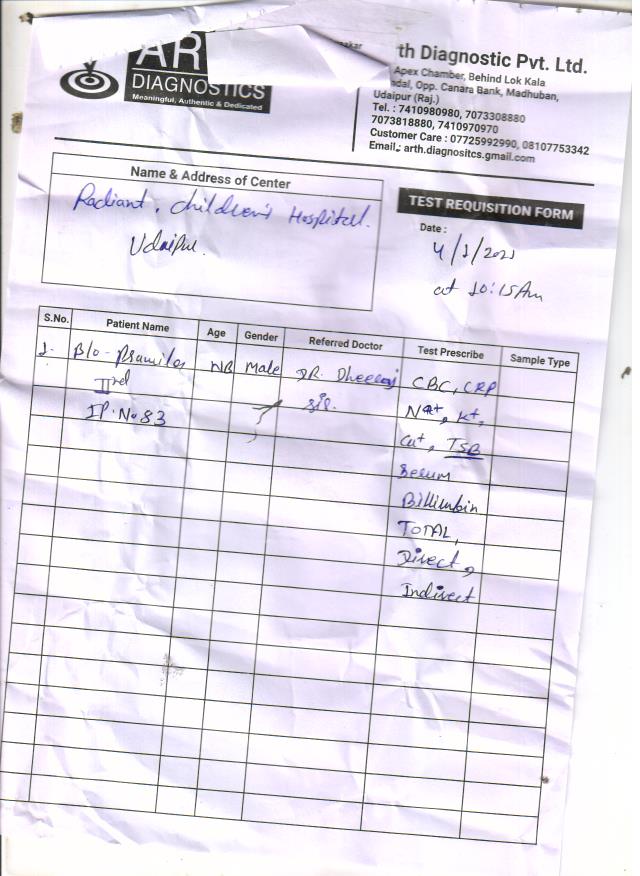 AR
DIAGNOSTICS
Meaningful, Authentic & Dedicated
rth Diagnostic Pvt. Ltd.
Apex Chamber, Behind Lok Kala
ndal, Opp. Canara Bank, Madhuban,
Udaipur (Raj.)
Tel. : 7410980980, 7073308880
7073818880, 7410970970
Customer Care : 07725992990, 08107753342
Email.: arth.diagnositcs.gmail.com
Name & Address of Center
Radiant. Children's Hospital.
Udaipur.
TEST REQUISITION FORM
Date :
at 10:15Am
S.No. Patient Name Age Gender Referred Doctor Test Prescribe Sample Type
1. B/o - Pramila NB Male DR. Dheeraj CBC, CRP
IInd Sir. Na+, K+,
IP. No 83 Ca+, TSB
Serum
Billirubin
TOTAL,
Direct,
Indirect